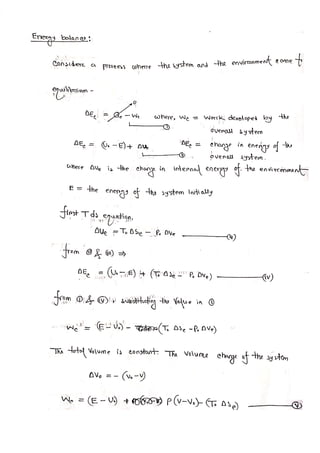 Energy balance:
Considers a process where the system and the environment come to
equilibrium -
ΔEc = Qc - Wc where, Wc = Work developed by the
①
overall system
ΔEc = (U₀ - E) + ΔUe ΔEc = change in energy of the
overall system.
where ΔUe is the change in internal energy of the environment
E = the energy of the system initially
first T ds equation,
ΔUe = T₀ ΔSe - P₀ ΔVe
from ② & (iii) ⇒
ΔEc = (U₀ - E) + (T₀ ΔSe - P₀ ΔVe) (iv)
from ① & (iv) substituting the value in ①
Wc = (E - U₀) - (T₀ ΔSe - P₀ ΔVe)
The total volume is constant. The volume change of the system
ΔVe = - (V₀ - V)
Wc = (E - U₀) + P (V - V₀) - (T₀ ΔSe)